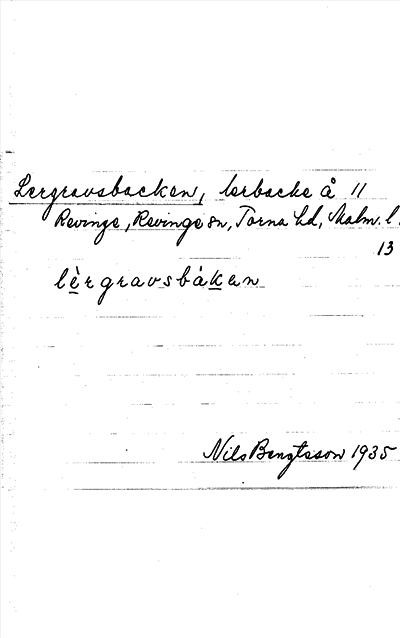 Lergravsbacken, lerbacke å 11
Revinge, Revinge sn, Torna hd, Malm. l.
13
lèrgravsbákan
Nils Bengtsson 1935